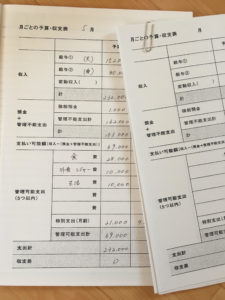 月ごとの予算・収支表 5 月
予
収入
給与① (夫)
給与② (妻)
変動収入( )
計 242,000
預金
+
管理不能支出
強制預金
管理不能支出計
計
支払い可能額(収入-(預金+管理不能支出)) 69,000
管理可能支出
(5つ以内)
食 費 28,000
外食 レジャー 費 10,000
生活 費 10,000
費
費
特別支出(月割) 21,000
管理可能支出計 69,000
支出計 242,000
収支差 0
月ごとの予算・収支表
収入
給与①
給与②
変動収入(
計
預金
+
管理不能支出
強制預金
管理不能支出
計
支払い可能額(収入-(預金+管理
管理可能支出
(5つ以内)
特別支出(月
管理可能支出
支出計
収支差